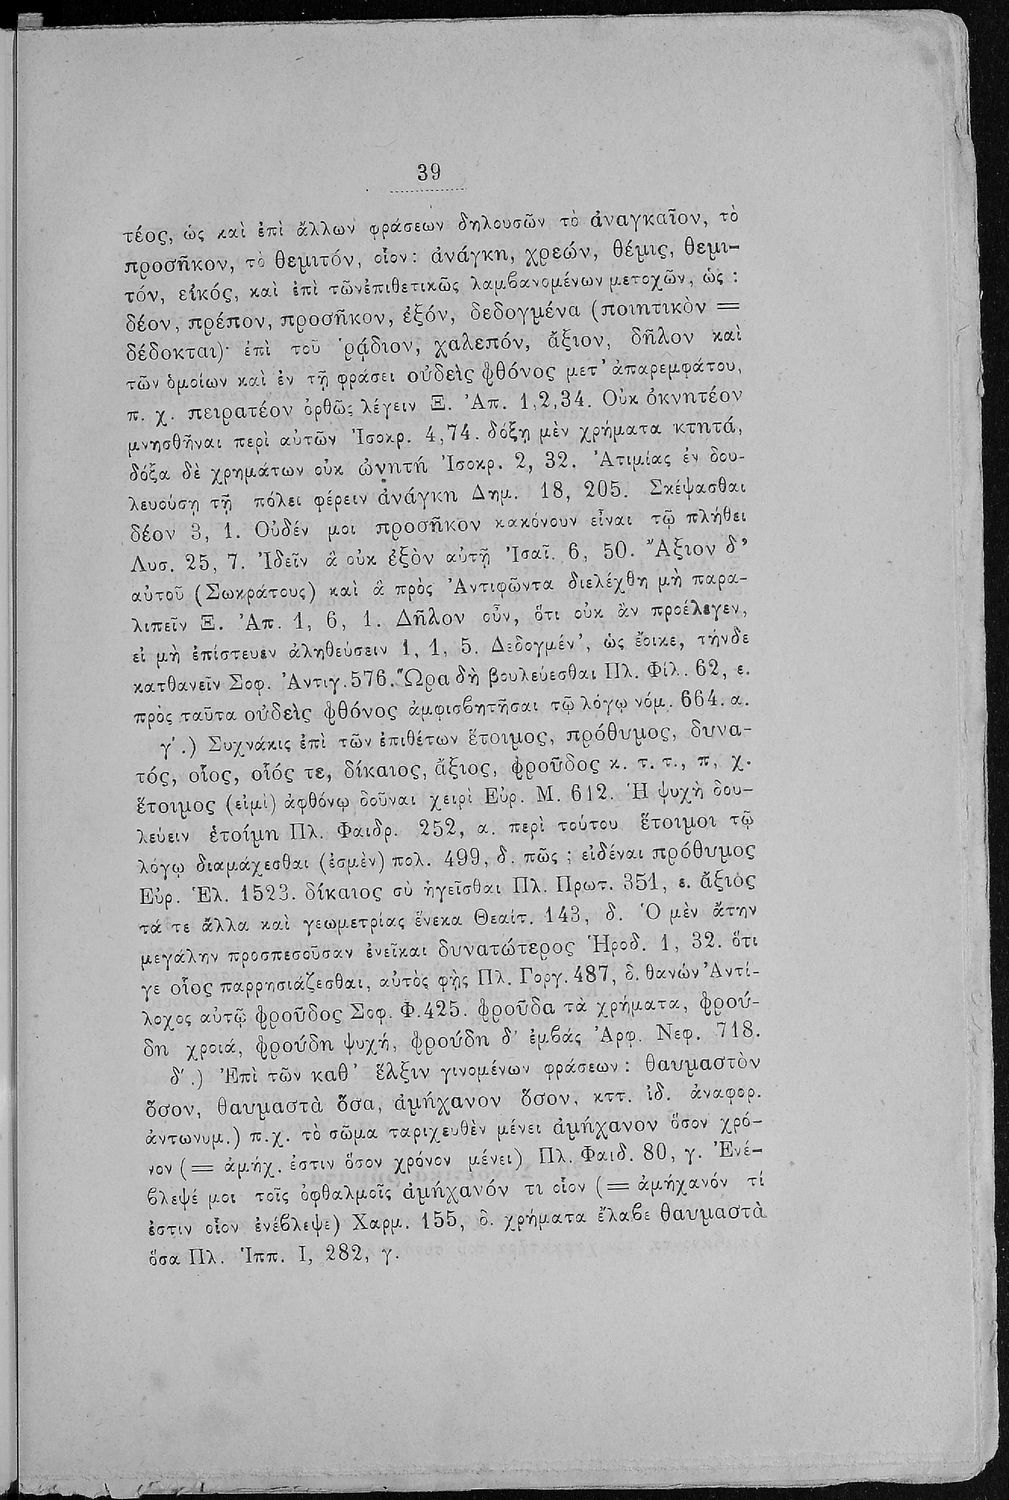 39
τέος, ὡς καὶ ἐπὶ ἄλλων φράσεων δηλουσῶν τὸ ἀναγκαῖον, τὸ
προσῆκον, τὸ θεμιτόν, οἷον: ἀνάγκη, χρεών, θέμις, θεμι-
τόν, εἰκός, καὶ ἐπὶ τῶνἐπιθετικῶς λαμβανομένων μετοχῶν, ὡς:
δέον, πρέπον, προσῆκον, ἐξόν, δεδογμένα (ποιητικὸν =
δέδοκται)· ἐπὶ τοῦ ῥᾴδιον, χαλεπόν, ἄξιον, δῆλον καὶ
τῶν ὁμοίων καὶ ἐν τῇ φράσει οὐδεὶς φθόνος μετ' ἀπαρεμφάτου,
π. χ. πειρατέον ὀρθῶς λέγειν Ξ. Ἀπ. 1,2,34. Οὐκ ὀκνητέον
μνησθῆναι περὶ αὐτῶν Ἰσοκρ. 4,74. δόξῃ μὲν χρήματα κτητά,
δόξα δὲ χρημάτων οὐκ ὠνητή Ἰσοκρ. 2, 32. Ἀτιμίας ἐν δου-
λευούσῃ τῇ πόλει φέρειν ἀνάγκη Δημ. 18, 205. Σκέψασθαι
δέον 3, 1. Οὐδέν μοι προσῆκον κακόνουν εἶναι τῷ πλήθει
Λυσ. 25, 7. Ἰδεῖν ἃ οὐκ ἐξὸν αὐτῇ Ἰσαῖ. 6, 50. Ἄξιον δ'
αὐτοῦ (Σωκράτους) καὶ ἃ πρὸς Ἀντιφῶντα διελέχθη μὴ παρα-
λιπεῖν Ξ. Ἀπ. 1, 6, 1. Δῆλον οὖν, ὅτι οὐκ ἂν προέλεγεν,
εἰ μὴ ἐπίστευεν ἀληθεύσειν 1, 1, 5. Δεδογμέν', ὡς ἔοικε, τήνδε
κατθανεῖν Σοφ. Ἀντιγ. 576. Ὥρα δὴ βουλεύεσθαι Πλ. Φίλ. 62, ε.
πρὸς ταῦτα οὐδεὶς φθόνος ἀμφισβητῆσαι τῷ λόγῳ νόμ. 664. α.
γ'.) Συχνάκις ἐπὶ τῶν ἐπιθέτων ἕτοιμος, πρόθυμος, δυνα-
τός, οἷος, οἷός τε, δίκαιος, ἄξιος, φροῦδος κ. τ. τ., π, χ.
ἕτοιμος (εἰμὶ) ἀφθόνῳ δοῦναι χειρὶ Εὐρ. Μ. 612. Ἡ ψυχὴ δου-
λεύειν ἑτοίμη Πλ. Φαιδρ. 252, α. περὶ τούτου ἕτοιμοι τῷ
λόγῳ διαμάχεσθαι (ἐσμὲν) πολ. 499, δ. πῶς ; εἰδέναι πρόθυμος
Εὐρ. Ἑλ. 1523. δίκαιος σὺ ἡγεῖσθαι Πλ. Πρωτ. 351, ε. ἄξιος
τά τε ἄλλα καὶ γεωμετρίας ἕνεκα Θεαίτ. 143, δ. Ὁ μὲν ἄτην
μεγάλην προσπεσοῦσαν ἐνεῖκαι δυνατώτερος Ἡροδ. 1, 32. ὅτι
γε οἷος παρρησιάζεσθαι, αὐτὸς φῂς Πλ. Γοργ. 487, δ. θανὼν Ἀντί-
λοχος αὐτῷ φροῦδος Σοφ. Φ.425. φροῦδα τὰ χρήματα, φρού-
δη χροιά, φρούδη ψυχή, φρούδη δ' ἐμβάς Ἀρφ. Νεφ. 718.
δ'.) Ἐπὶ τῶν καθ' ἕλξιν γινομένων φράσεων: θαυμαστὸν
ὅσον, θαυμαστὰ ὅσα, ἀμήχανον ὅσον, κττ. ἰδ. ἀναφορ.
ἀντωνυμ.) π.χ. τὸ σῶμα ταριχευθὲν μένει ἀμήχανον ὅσον χρό-
νον (= ἀμήχ. ἐστιν ὅσον χρόνον μένει) Πλ. Φαιδ. 80, γ. Ἐνέ-
βλεψέ μοι τοῖς ὀφθαλμοῖς ἀμήχανόν τι οἷον (= ἀμήχανόν τί
ἐστιν οἷον ἐνέβλεψε) Χαρμ. 155, δ. χρήματα ἔλαβε θαυμαστὰ
ὅσα Πλ. Ἱππ. Ι, 282, γ.